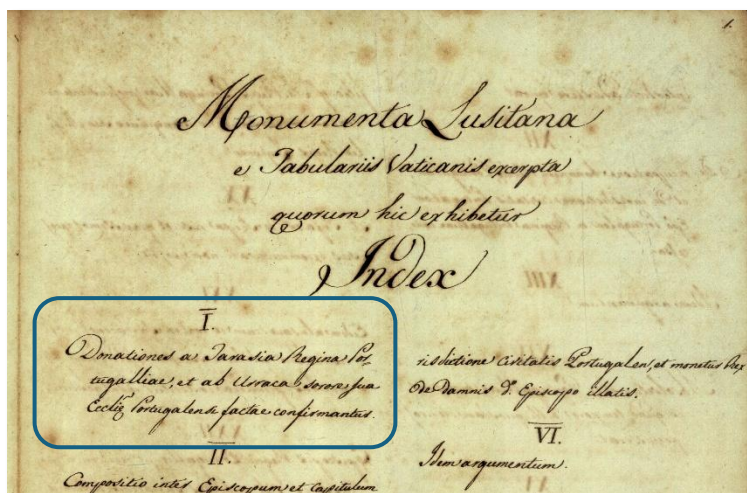 1.
Monumenta Lusitana
e Tabulariis Vaticanis excerpta
quorum hic exhibetur
Index
I.
Donationes a Tarasia Regina Por-
tugalliae, et ab Urraca sorore sua
Ecclię Portugalensi factae confirmantur.
II.
Compositio inter Episcopum et Capitulum
risdictione civitatis Portugalen, et monetur Rex
de damnis d. Episcopo illatis.
VI.
Idem argumentum.